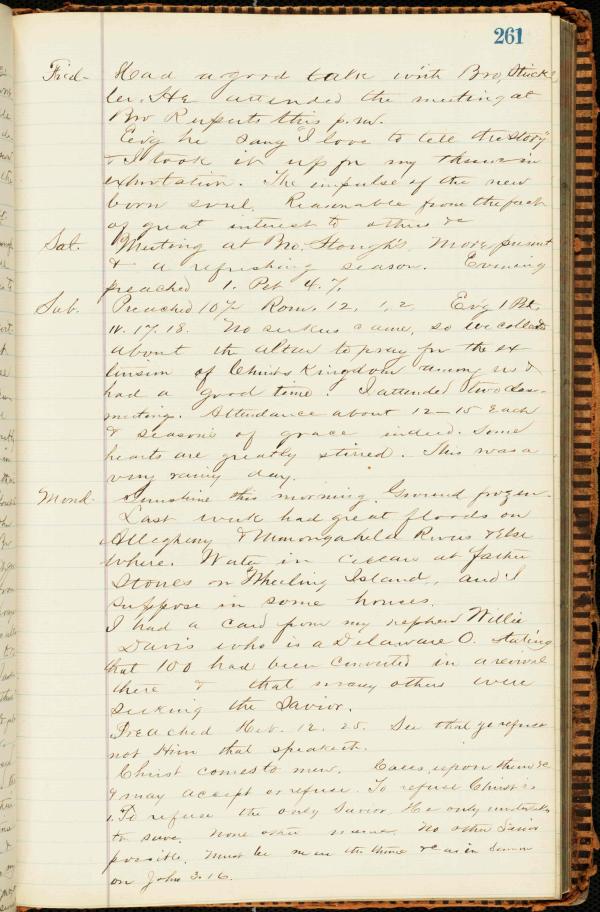 261
Frid- Had a good talk with Bro, Stuck-
ler. He attended the meeting at
Bro Ruperts this p.m.
Ev'g he sang "I love to tell the story"
& I took it up for my theme in
exhortation. The impulse of the new
born soul. Reasonable from the fact
of great interest to others &c
Sat. Meeting at Bro. Slough's. More present
& a refreshing season. Evening
preached 1. Pet 4. 7.
Sab. Preached 10½ Rom. 12. 1, 2, Ev'g 1 Pet.
4. 17. 18. No seekers came, so we collected
about the altar to pray for the ex
tension of Christs Kingdom among us &
had a good time. I attended two class
meetings. Attendance about 12-15 each
& seasons of grace indeed. Some
hearts are greatly stirred. This was a
very rainy day.
Mond. Sunshine this morning. Ground frozen.
Last week had great floods on
Allegheny & Monongahela Rivers & Else
where. Water in cellar at father
Stones on Wheeling Island, and I
suppose in some houses.
I had a card from my nephew Willie
Davis who is a Delaware O. stating
that 100 had been converted in a revival
there & that many others were
seeking the Savior.
Preached Heb. 12. 25. See that ye refuse
not Him that speaketh.
Christ comes to men. Calls upon them &c
& may accept or refuse. To refuse Christ is
1. To refuse the only Savior. He only undertakes
to save. None other name. No other Savior
possible. Must be man the &c as in Sermon
on John 3.16.